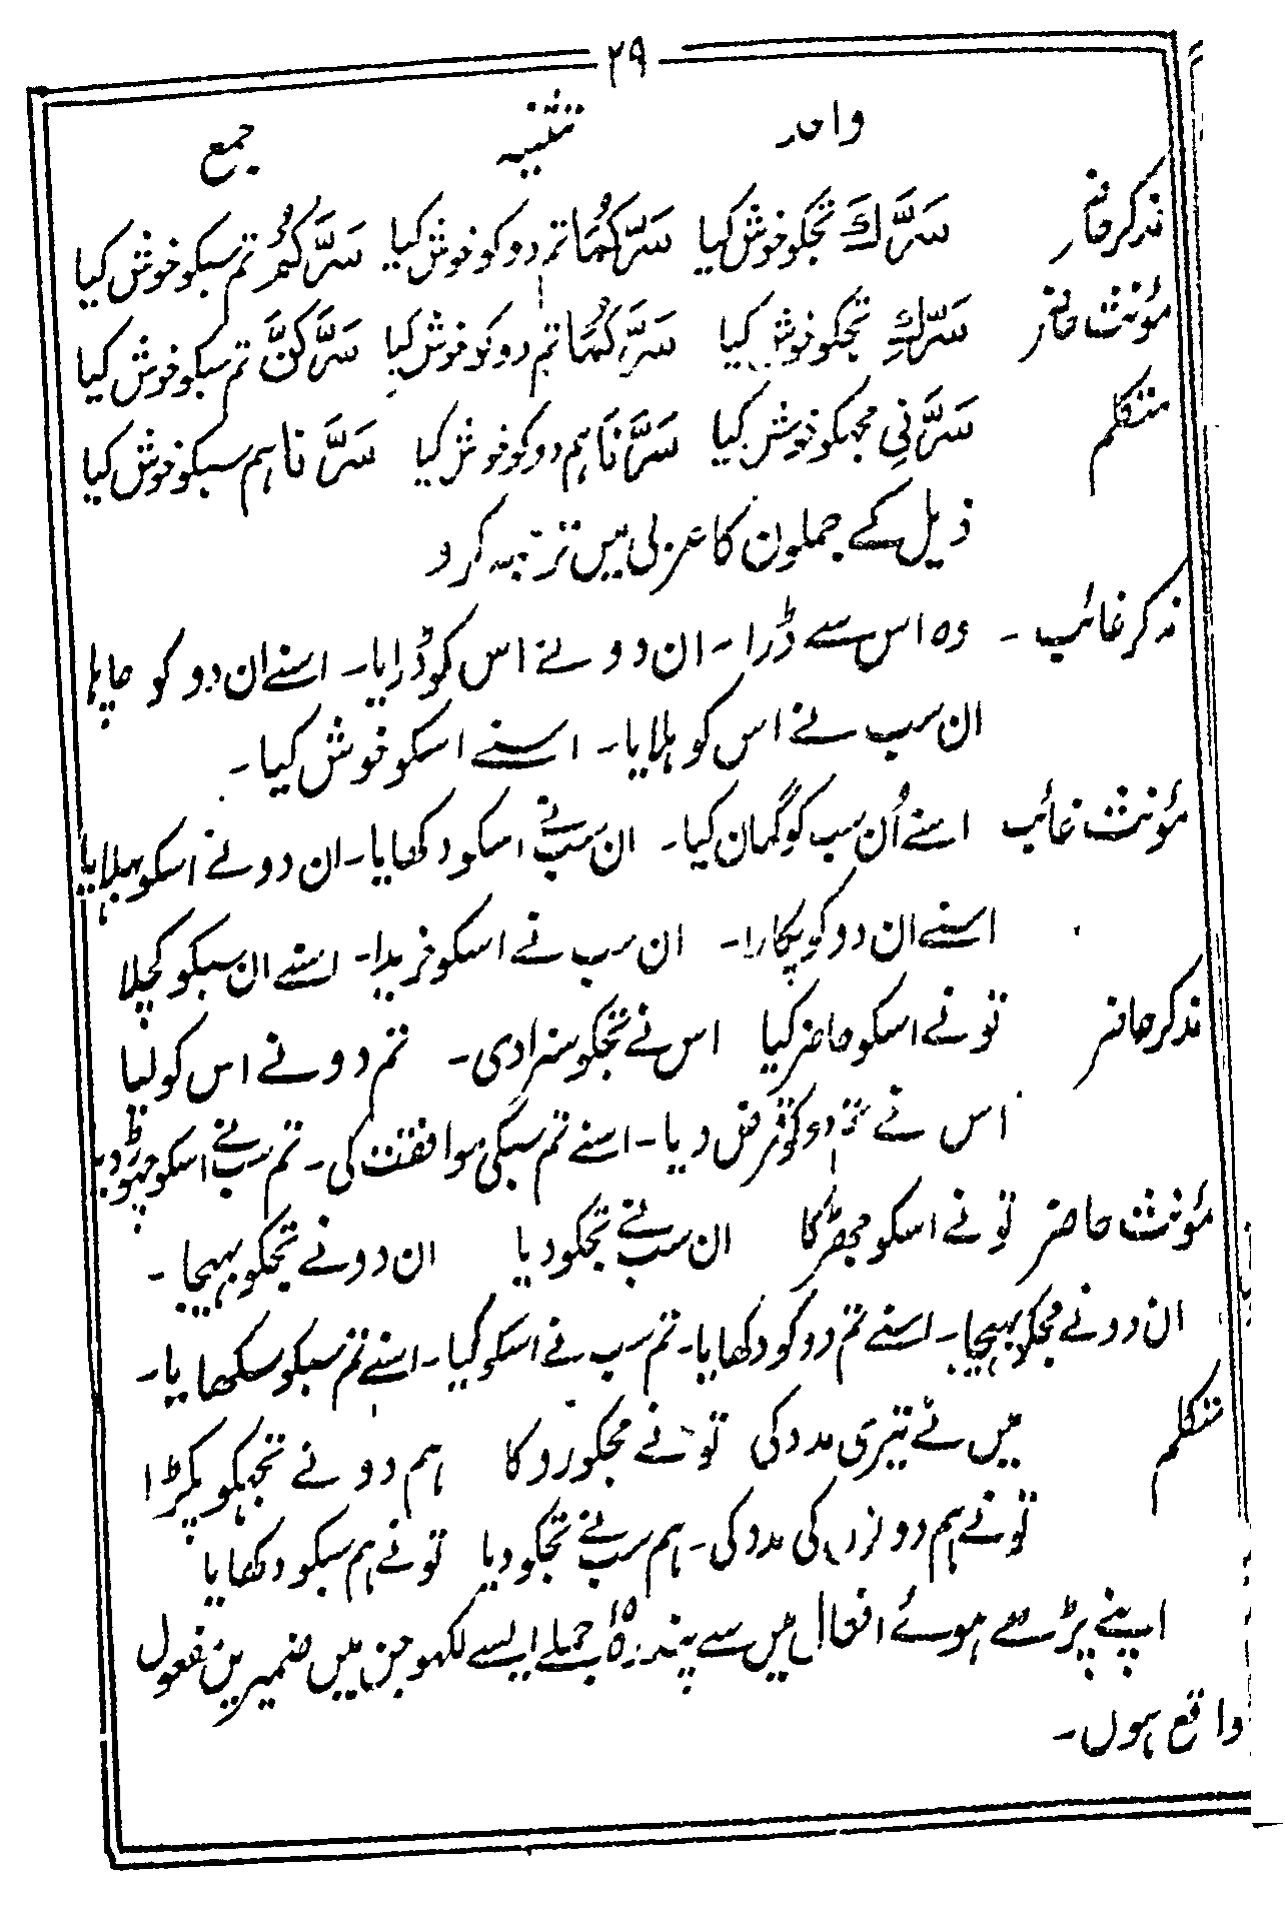 ۲۹
واحد تثنیہ جمع
مذکر حاضر سَرَّكَ تجکو خوش کیا سَرَّكُمَا تم دو کو خوش کیا سَرَّكُمْ تم سبکو خوش کیا
مؤنث حاضر سَرَّكِ تجکو خوش کیا سَرَّكُمَا تم دو کو خوش کیا سَرَّكُنَّ تم سبکو خوش کیا
متکلم سَرَّنِي مجہکو خوش کیا سَرَّنَا ہم دو کو خوش کیا سَرَّنَا ہم سبکو خوش کیا
ذیل کے جملون کا عربی میں ترجمہ کرو
مذکر غائب - وہ اس سے ڈرا - ان دو نے اس کو ڈرایا - اسنے ان دو کو چاہا
ان سب نے اس کو ہلایا - اسنے اسکو خوش کیا -
مؤنث غائب اسنے اُن سب کو گمان کیا - ان سب نے اسکو دکھایا - ان دو نے اسکو بہلایا
اسنے ان دو کو پکارا - ان سب نے اسکو خریدا - اسنے ان سبکو کچلا
مذکر حاضر تو نے اسکو حاضر کیا اس نے تجکو سزا دی - تم دو نے اس کو لیا
اس نے تم دو کو قرض دیا - اسنے تم سبکی موافقت کی - تم سب نے اسکو چھوڑ دیا
مؤنث حاضر تو نے اسکو جھڑکا ان سب نے تجکو دیا ان دو نے تجکو بہیجا -
ان دو نے مجکو بہیجا - اسنے تم دو کو دکھایا - تم سب نے اسکو کیا - اسنے تم سبکو سکھایا -
متکلم میں نے تیری مدد کی تو نے مجکو روکا ہم دو نے تجہکو پکڑا
تو نے ہم دونوں کی مدد کی - ہم سب نے تجکو دیا تو نے ہم سبکو دکھایا
اپنے پڑھے ہوئے افعال میں سے پندرہ ۱۵ جملے ایسے لکھو جن میں ضمیرین مفعول
واقع ہوں -